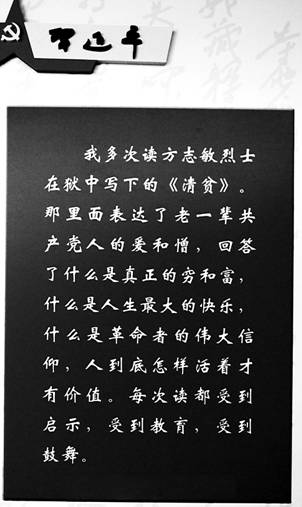 習近平
我多次读方志敏烈士
在狱中写下的《清贫》。
那里面表达了老一辈共
产党人的爱和憎，回答
了什么是真正的穷和富，
什么是人生最大的快乐，
什么是革命者的伟大信
仰，人到底怎样活着才
有价值。每次读都受到
启示，受到教育，受到
鼓舞。